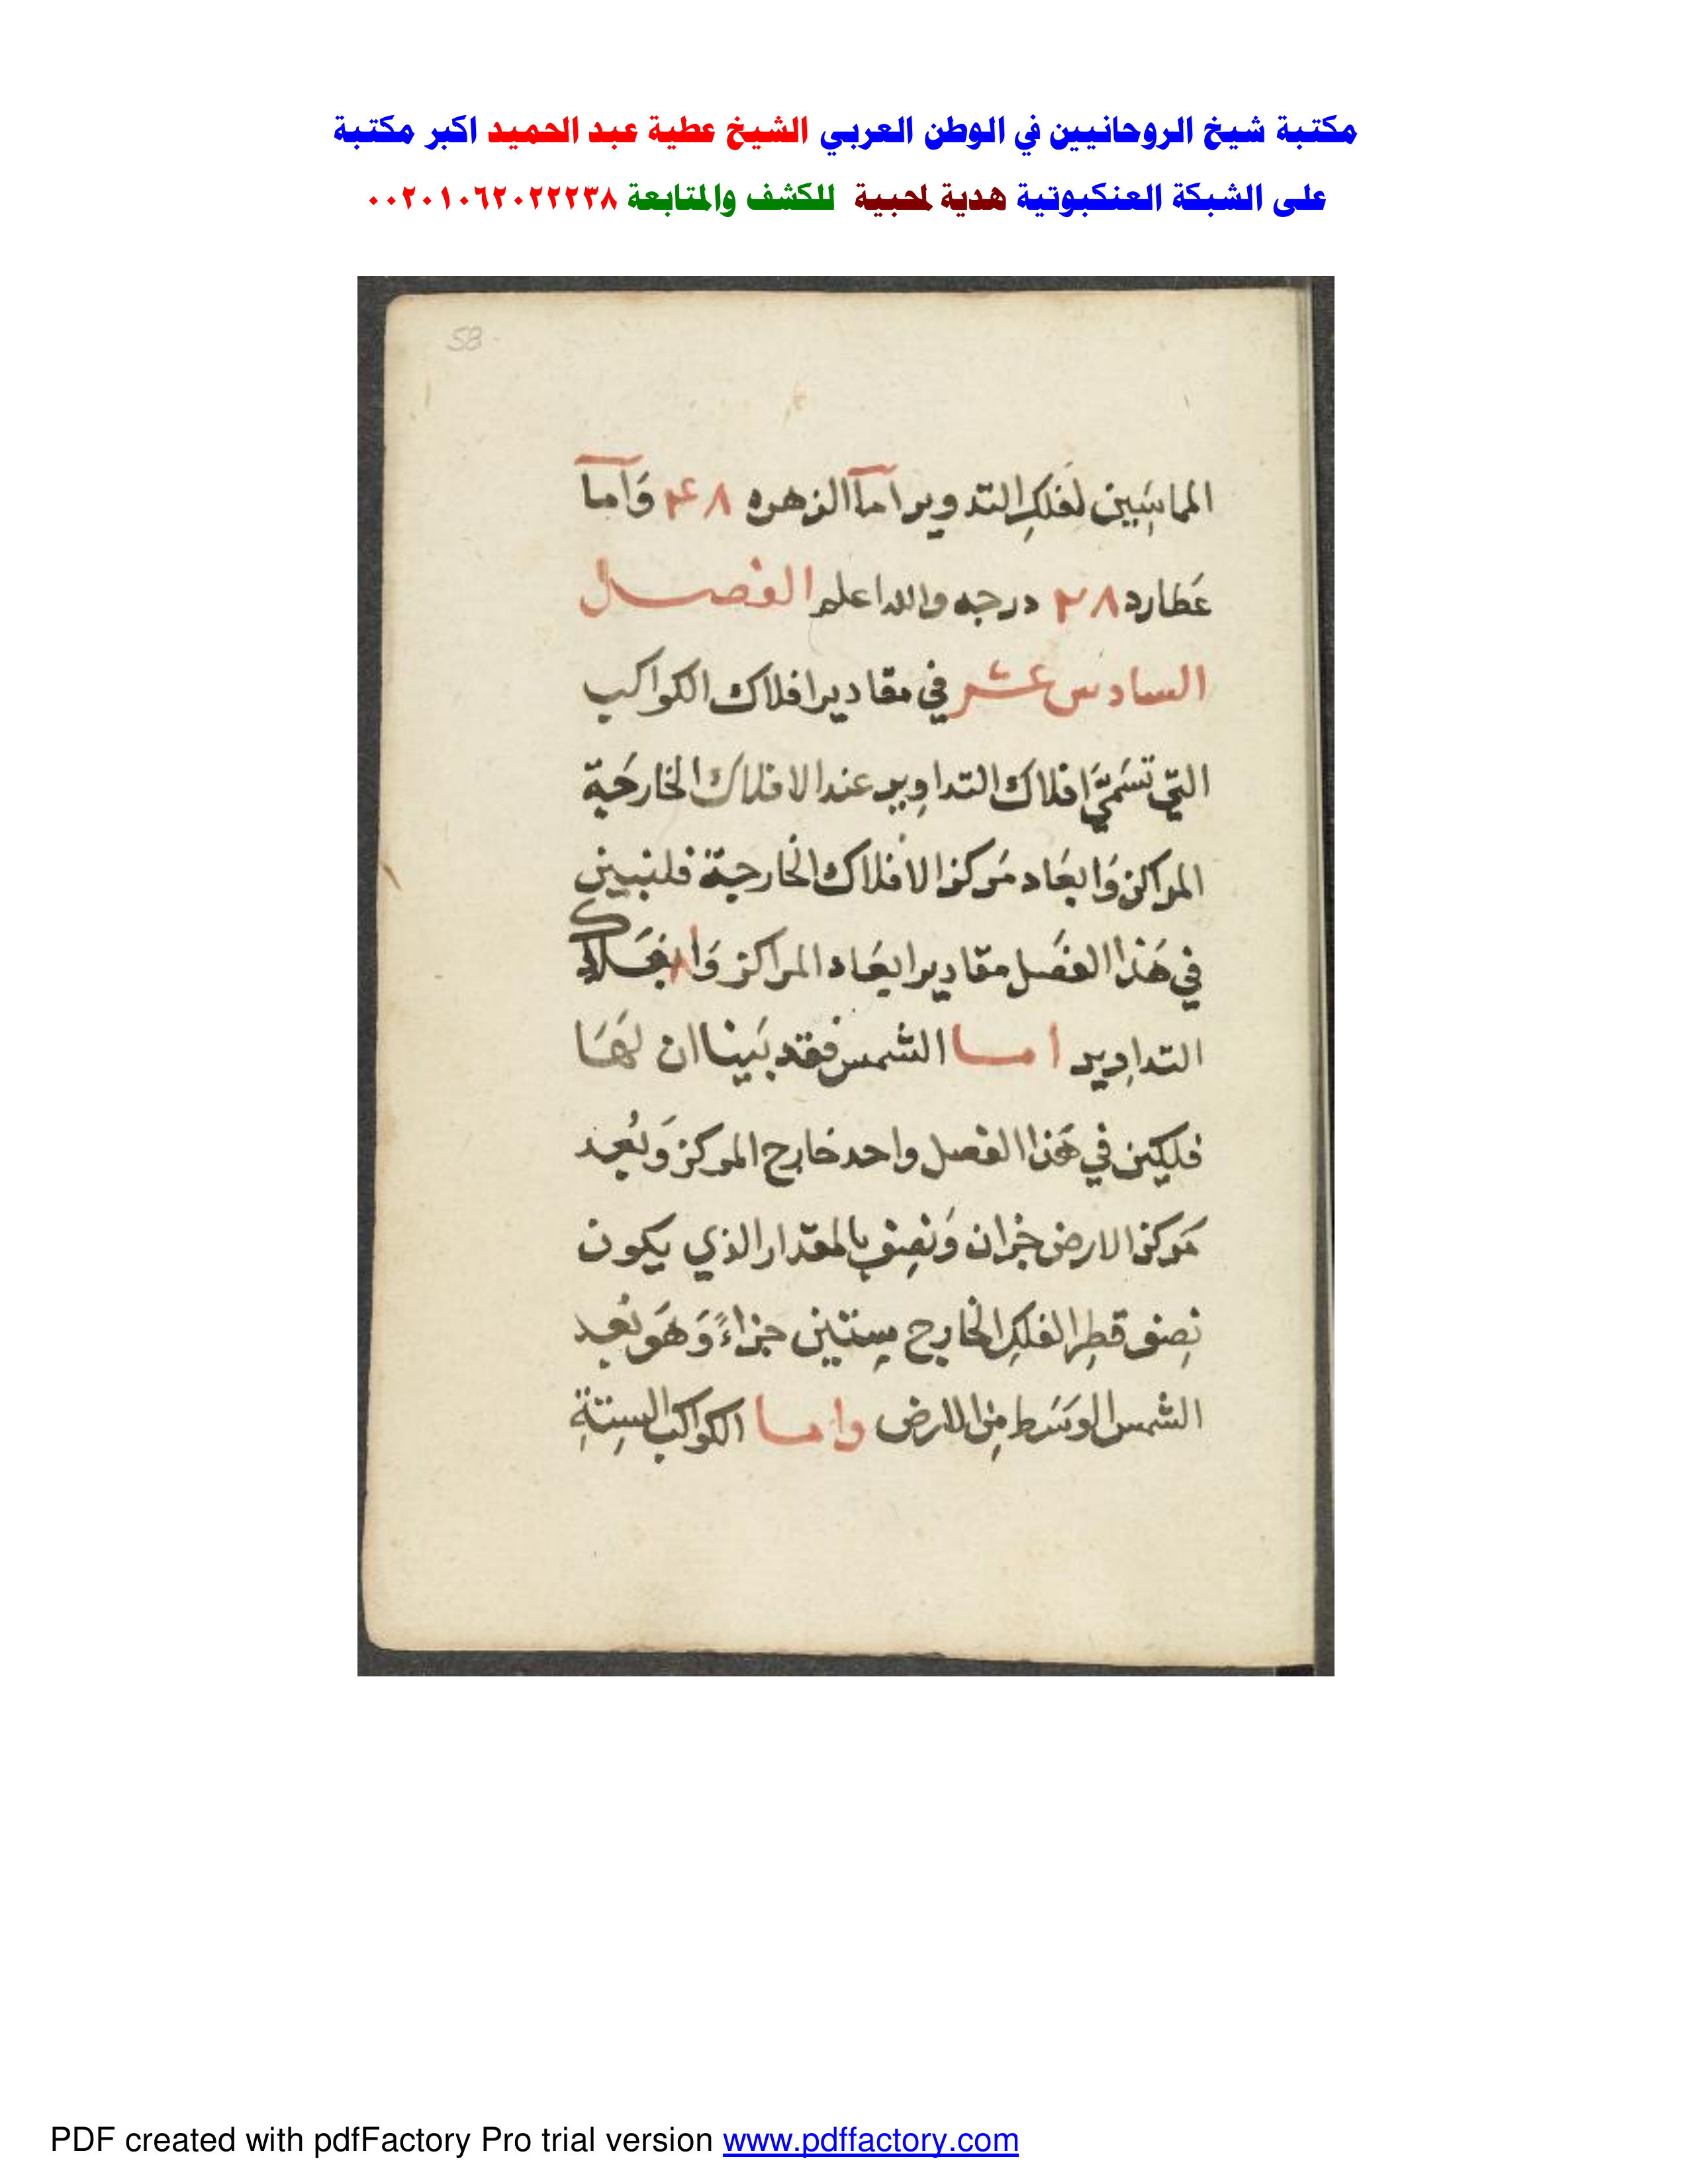 مكتبة شيخ الروحانيين في الوطن العربي الشيخ عطية عبد الحميد اكبر مكتبة
على الشبكة العنكبوتية هدية لمحبية للكشف والمتابعة ٠٠٢٠١٠٦٢٠٢٢٢٣٨
58
المماسَيين لفَلكِ التدوير امآ الزهره ٤٨ وَامآ
عَطارد ٢٨ درجه والله اعلم الفصل
السادس عشر في مقادير افلاك الكواكب
التي تسَمّيَ افلاك التداوِير عند الافلاك الخارجَية
المراكز وَابعَاد مَركز الافلاك الخارجية فلنبين
في هَذا الفصَل مقادير ابعَاد المراكز وَ
التداوِير اما الشمس فقد بَينا ان لهَا
فلكين في هَذا الفصل واحد خارج المركز وَبُعد
مَركز الارض جزان وَنصِف بالمقدار الذي يكون
نِصف قطِر الفلكِ الخارج سِتين جزاءً وَهوَ بُعد
الشمس الوسَط مِن الارض واما الكواكب السِتةِ
PDF created with pdfFactory Pro trial version www.pdffactory.com